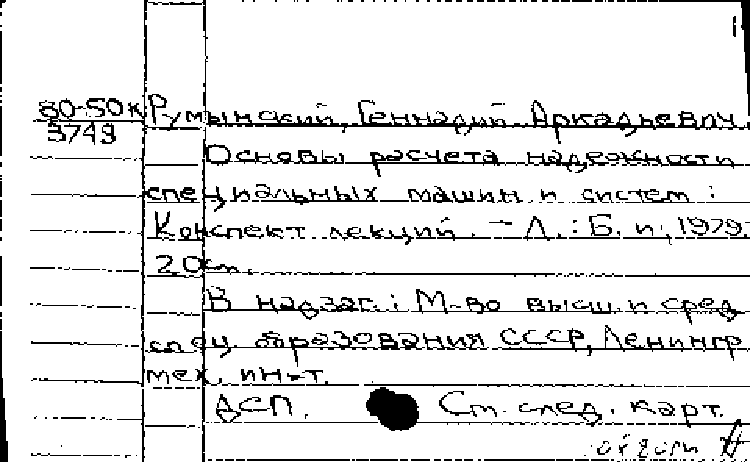 80-50к Румынский, Геннадий Аркадьевич.
3743
Основы расчета надежности
специальных машин и систем :
Конспект лекций. - Л. : Б. и., 1979.
20см.
В надзаг.: М-во высш. и сред.
спец. образования СССР, Ленингр.
мех. ин-т.
ДСП. См. след. карт.